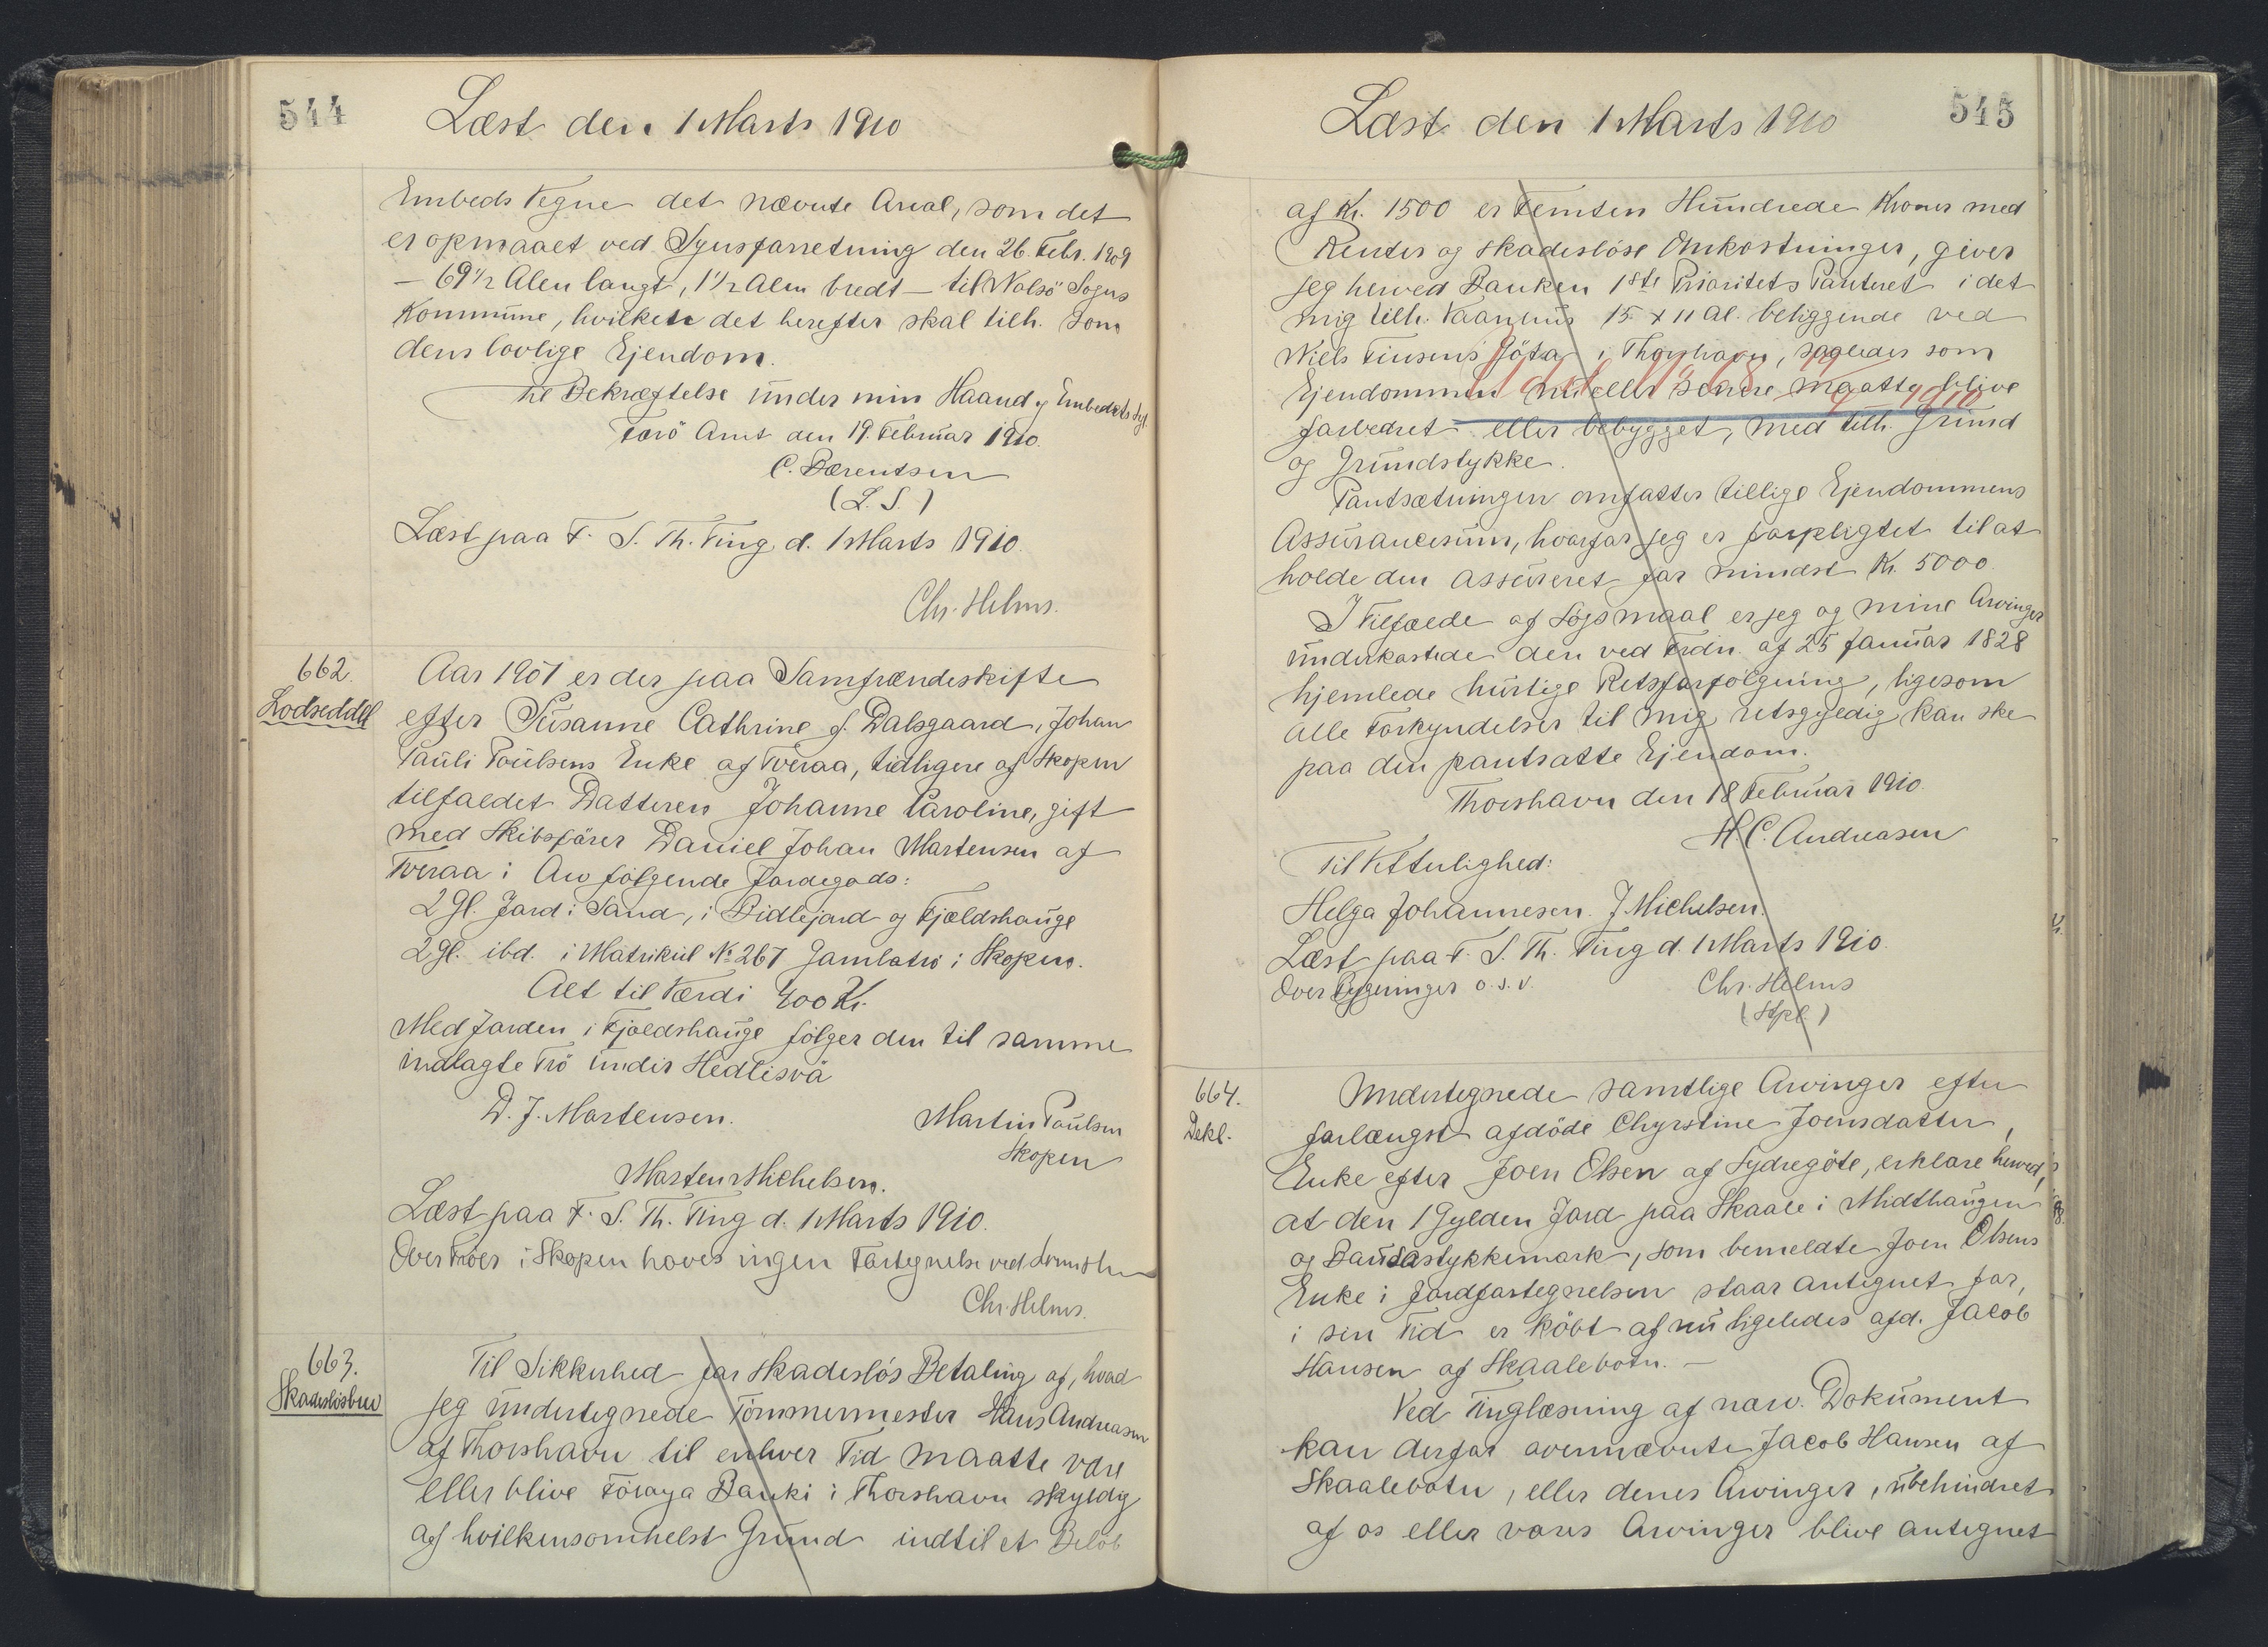 544
Læst den 1 Marts 1910
Embeds Vegne det nævnte Areal, som det
er opmaalt ved Synsforretning den 26. Febr. 1909
– 69½ Alen langt, 1½ Alen bredt – til Nolsö Sogns
Kommune, hvilken det herefter skal tilh. som
dens lovlige Ejendom.
Til Bekræftelse under min Haand og Embedets Segl.
Færö Amt den 19. Februar 1910.
C. Bærentsen
(L. S.)
Læst paa F. S. Th. Ting d. 1 Marts 1910.
Chr. Helms.
662.
Lodseddel
Aar 1907 er der paa Samfrændeskifte
efter Susanne Cathrine f. Dalsgaard, Johan
Pauli Poulsens Enke af Tveraa, tidligere af Skopen
tilfaldet Datteren Johanne Caroline, gift
med Skibsförer Daniel Johan Martensen af
Tveraa i Arv fölgende Jordegods:
2 Gl. Jord i Sand, i Bidlejord og Fjældshauge
2 Gl. ibd. i Matrikul No 267 Jamlatrö i Skopen.
Alt til Værdi 400 Kr.
Med Jorden i Fjældshauge fölger den til samme
indlagte Trö under Hedlisvä
D. J. Martensen.
Martin Poulsen
Skopen
Morten Michelsen.
Læst paa F. S. Th. Ting d. 1 Marts 1910.
Over Tröer i Skopen haves ingen Fortegnelse ved
Chr. Helms.
663.
Skadeslösbrev
Til Sikkerhed for skadeslös Betaling af, hvad
jeg undertegnede Tömmermester Hans Andreasen
af Thorshavn til enhver Tid maatte være
eller blive Föroya Banki i Thorshavn skyldig
af hvilkensomhelst Grund indtil et Belöb
545
Læst den 1 Marts 1910
af Kr. 1500 er Femten Hundrede Kroner med
Renter og skadeslöse Omkostninger, giver
jeg herved Banken 1ste Prioritets Panteret i det
mig tilh. Vaanhus 15 x 11 Al. beliggende ved
Niels Finsens Göta i Thorshavn, saaledes som
Ejendommen nu eller senere maatte blive
forbedret eller bebygget, med tilh. Grund
og Grundstykke.
Pantsætningen omfatter tillige Ejendommens
Assurancesum, hvorfor jeg er forpligtet til at
holde den assureret for mindst Kr. 5000.
I Tilfælde af Sögsmaal er jeg og mine Arvinger
underkastede den ved Frdn. af 25 Januar 1828
hjemlede hurtige Retsforfölgning, ligesom
alle Forkyndelser til mig retsgyldig kan ske
paa den pantsatte Ejendom.
Thorshavn den 18 Februar 1910.
H. C. Andreasen
Til Vitterlighed:
Helga Johannesen. J. Michelsen.
Læst paa F. S. Th. Ting d. 1 Marts 1910.
Over Bygninger o. s. v.
Chr. Helms
(Stpl.)
664.
Dekl.
Undertegnede samtlige Arvinger efter
forlængst afdöde Chyrstine Joensdatter,
Enke efter Joen Olsen af Sydregöte, erklare herved,
at den 1 Gylden Jord paa Skaale i Midthaugen
og Dansastykkemark, som bemeldte Joen Olsens
Enke i Jordfortegnelsen staar antegnet for,
i sin Tid er köbt af nu ligeledes afd. Jacob
Hansen af Skaalebotn. –
Ved Tinglæsning af nærv. Dokument
kan derfor ovennævnte Jacob Hansen af
Skaalebotn, eller denes Arvinger, ubehindret
af os eller vores Arvinger blive antegnet